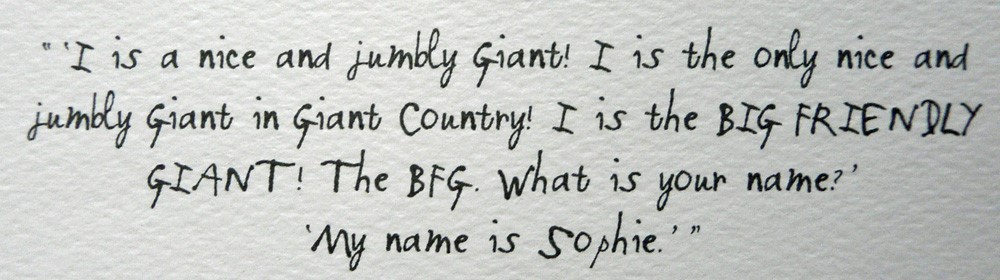 "'I is a nice and jumbly Giant! I is the only nice and
jumbly Giant in Giant Country! I is the BIG FRIENDLY
GIANT! The BFG. What is your name?'
'My name is Sophie.'"